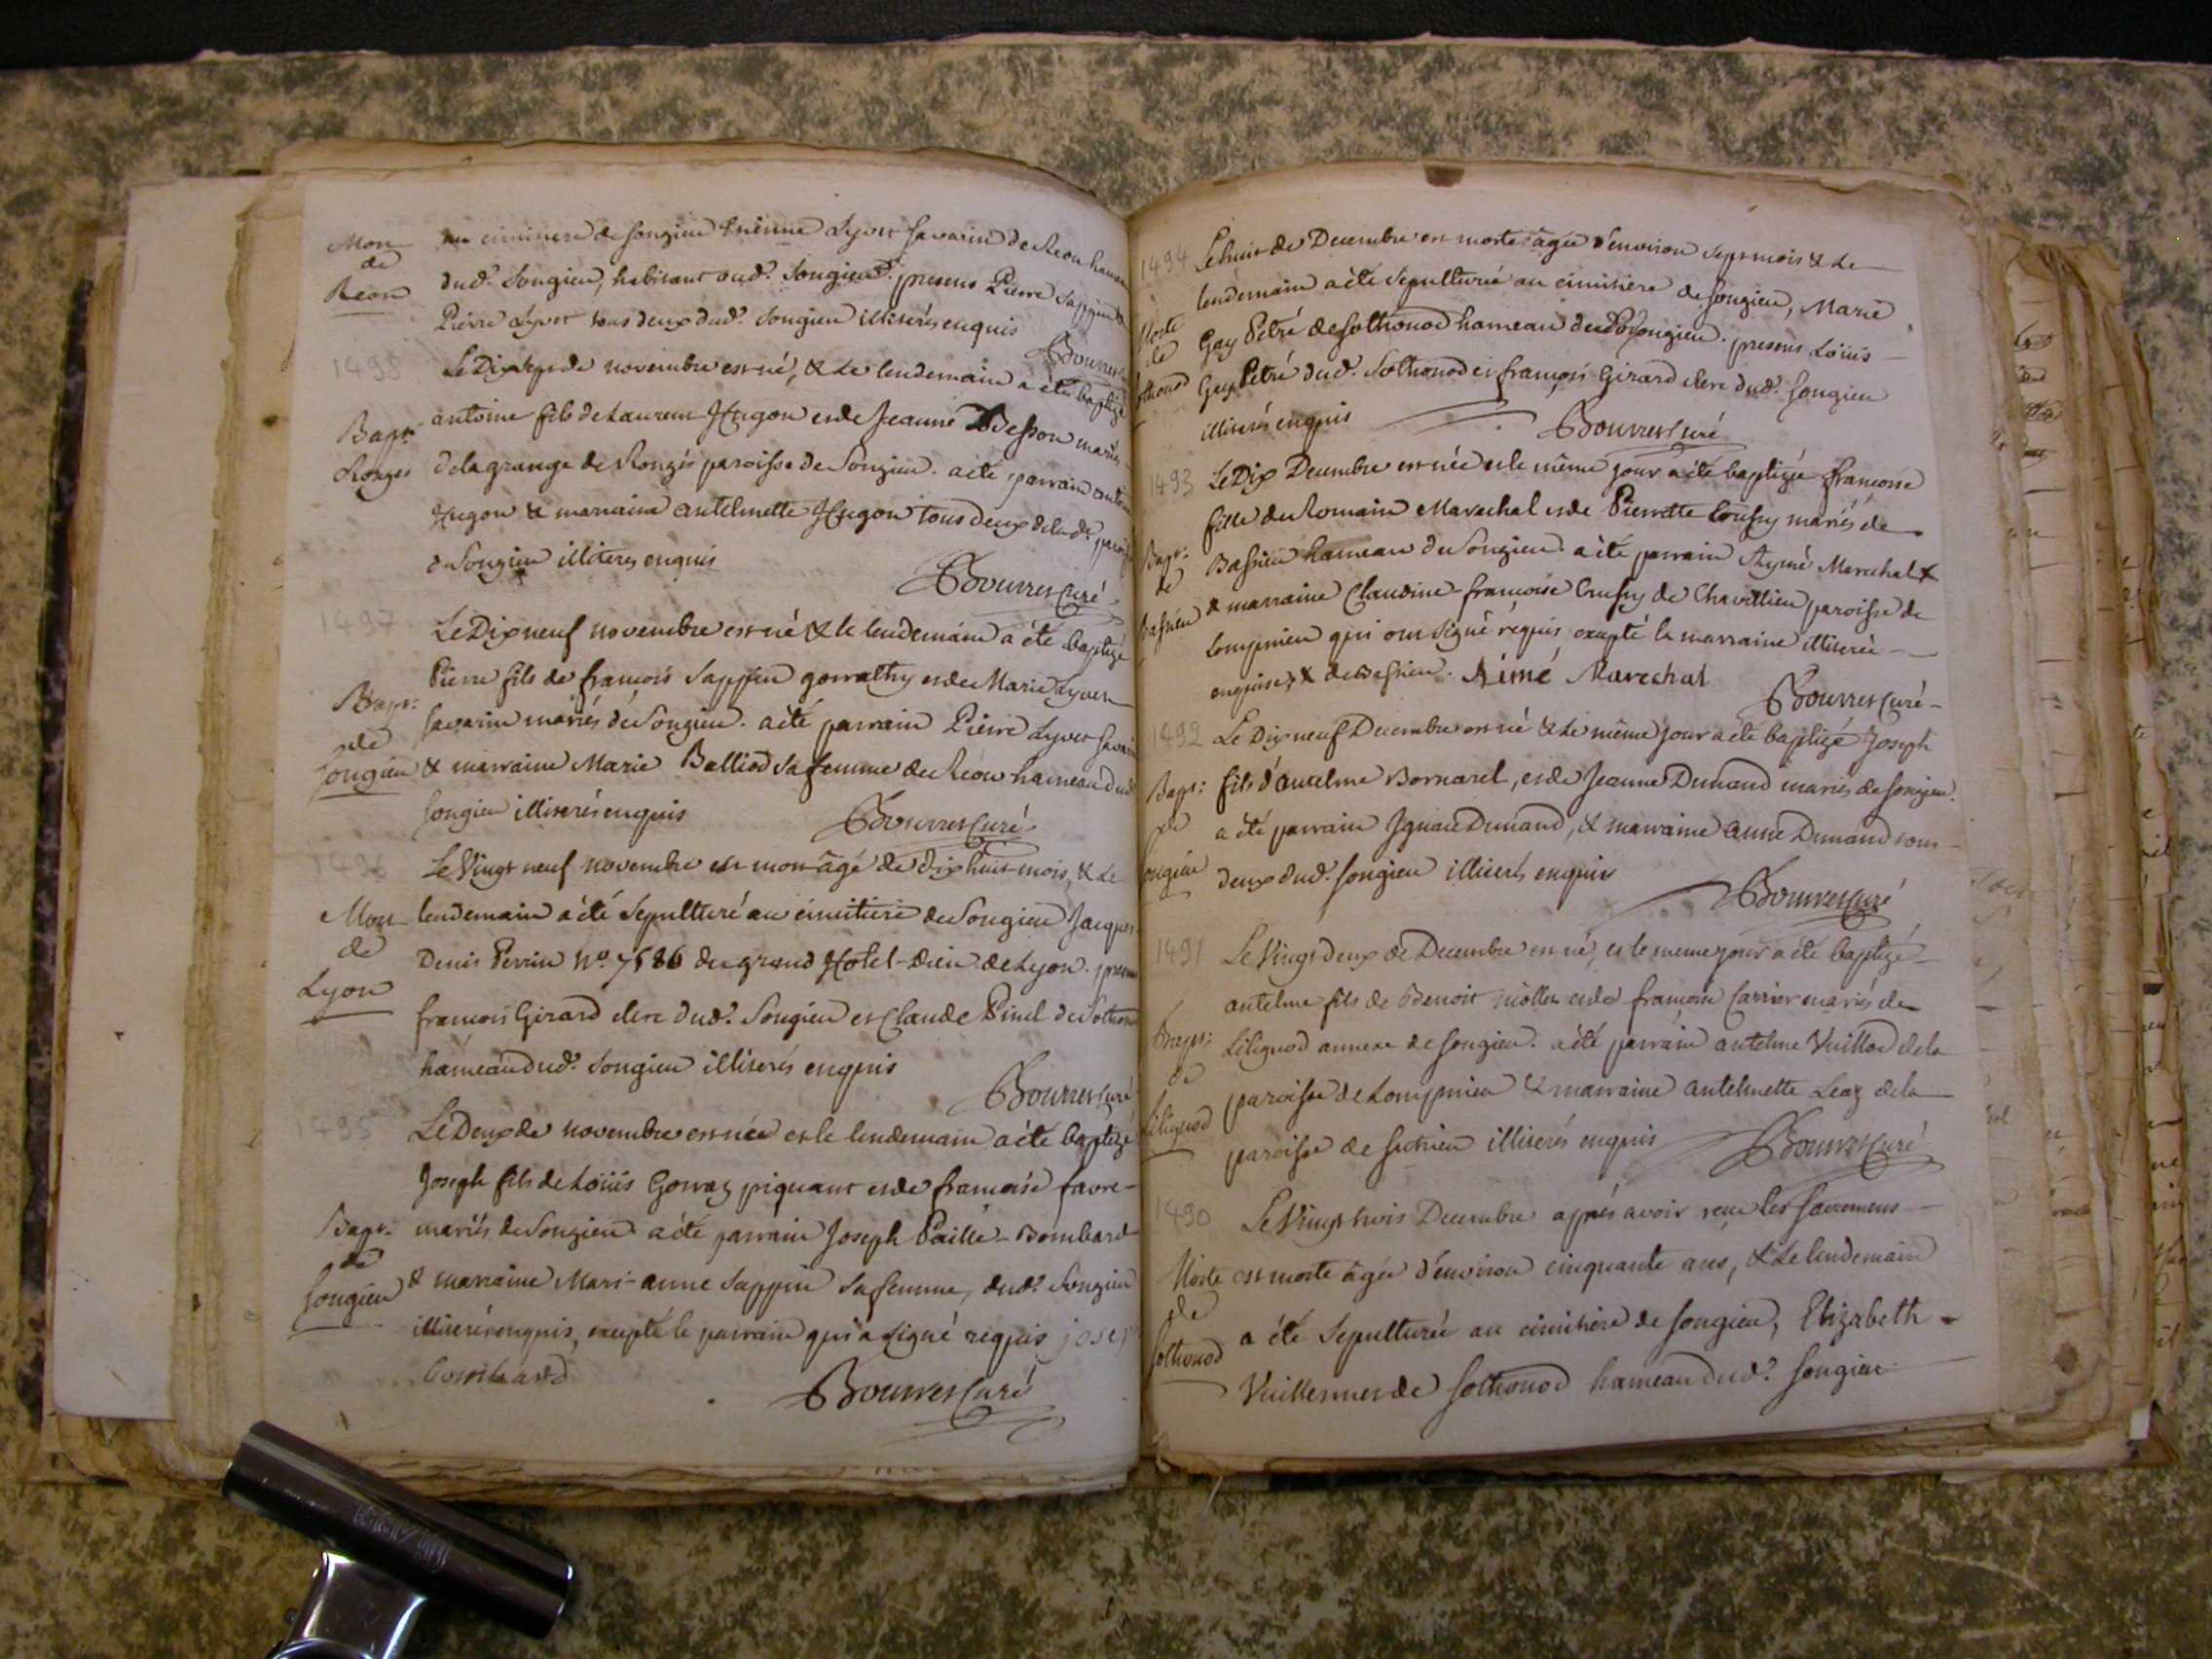 Mort
de
Reon
au cimitiere de songieu Etienne Lyvet savarin de Reon hameau
dud. Songieu, habitant aud. Songieu. presens Pierre Sappin &
Pierre Lyvet tous deux dud. Songieu illiterés enquis
Bouvret
1498
Le Dix sept de novembre est né, & le lendemain a été baptizé
Bapt:
Ronges
antoine fils de Laurent Hugon et de Jeanne Besson mariés
de la grange de Rongés paroisse de Songieu. a été parrain antoine
Hugon & marraine antelmette Hugon tous deux de lad. paroisse
de Songieu illiteres enquis
Bouvret Curé
1497
Le Dix neuf novembre est né & le lendemain a été baptizé
Bapt:
de
Songieu
Pierre fils de françois Sappin gorrathy et de Marie Lyvet
savarin mariés de Songieu. a été parrain Pierre Lyvet savarin
& marraine Marie Balliod sa femme de Réon hameau dud.
Songieu illiterés enquis
Bouvret Curé
1496
Le Vingt neuf novembre est mort âgé de dix huit mois, & le
Mort
de
Lyon
lendemain a été sepulturé au cimitiere de Songieu Jacques
Denis Perrin N.o 7586 du grand Hotel-Dieu de Lyon. presens
françois Girard clerc dud. Songieu et Claude Pinel de Sothonod
hameau dud. Songieu illiterés enquis
Bouvret Curé
1495
Le Deux de novembre est née et le lendemain a été baptizé
Joseph fils de Loüis Gorraz piquant et de françoise favre
Bapt:
de
Songieu
mariés de Songieu a été parrain Joseph Paillé-Bombard
& marraine Mari-anne Sappin sa femme, dud. Songieu
illiterés enquis, excepté le parrain qui a signé requis josep
bombard
Bouvret Curé
1494
Le huit de Decembre est morte âgée d'environ sept mois & le
lendemain a été sepulturée au cimitière de songieu, Marie
Morte
de
Sothonod
Gay Petré de Sothonod hameau dud. Songieu. presens Loüis
Gay Petré dud. Sothonod et françois Girard clerc dud. Songieu
illiterés enquis
Bouvret Curé
1493
Le Dix Decembre est née et le même jour a été baptizée françoise
fille de Romain Marechal et de Pierrette Crussy mariés de
Bapt:
de
Bassieu
Bassieu hameau de Songieu. a été parrain Aymé Marechal X
& marraine Claudine-françoise Crussy de Chavillieu paroisse de
Lompnieu qui ont signé réquis excepté la marraine illiterée
enquise, X de Bassieu. Aimé Marechal
Bouvret Curé
1492
Le Dix neuf Decembre est né & le même jour a été baptizé Joseph
Bapt:
de
Songieu
fils d'antelme Bornarel, et de Jeanne Dumand mariés de songieu.
a été parrain Ignace Dunand, & marraine anne Dunand tous
deux dud. songieu illiterés enquis
Bouvret Curé
1491
Le Vingt deux de Decembre est né, et le meme jour a été baptizé
antelme fils de Benoit miollet et de françoise Carrier mariés de
Bapt:
de
Lilignod
Lilignod annexe de songieu. a été parrain antelme Vuillod de la
paroisse de Lompnieu & marraine antelmette Leaz de la
paroisse de sutrieu illiterés enquis
Bouvret Curé
1490
Le Vingt trois Decembre après avoir reçu les sacremens
Morte
de
Sothonod
est morte âgée d'environ cinquante ans, & le lendemain
a été sepulturée au cimitière de songieu, Elizabeth
Vuillermet de sothonod hameau dud. songieu